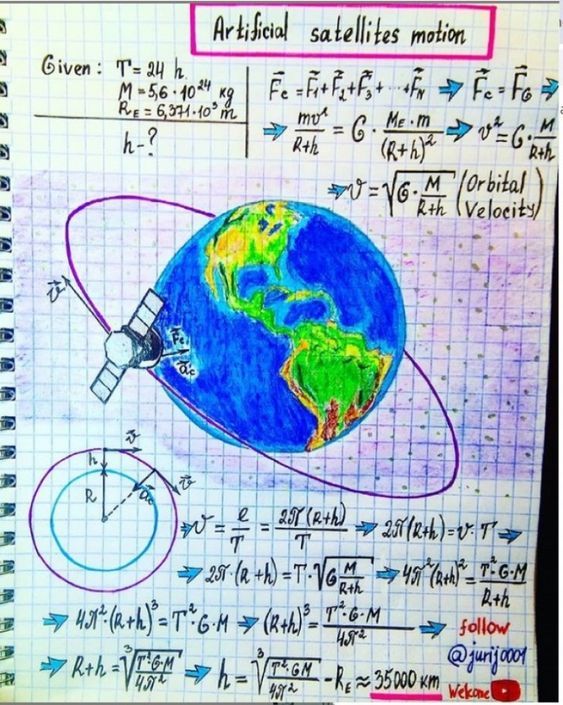 Artificial satellites motion
Given: T = 24 h
M = 5,6 · 10²⁴ кg
R_E = 6,371 · 10³ m
h - ?
F⃗_c = F⃗₁ + F⃗₂ + F⃗₃ + ··· + F⃗_N ⇒ F⃗_c = F⃗_G ⇒
⇒ mv²/(R+h) = G · (M_E · m)/(R+h)² ⇒ v² = G · M/(R+h)
⇒ v = √(G · M/(R+h)) (Orbital Velocity)
v⃗
F⃗_c
a⃗_c
v⃗
h
R
a⃗_c
v⃗
⇒ v = ℓ/T = 2π(R+h)/T ⇒ 2π(R+h) = v · T ⇒
⇒ 2π · (R+h) = T · √(G M/(R+h)) ⇒ 4π²(R+h)² = T² · G · M/(R+h)
⇒ 4π² · (R+h)³ = T² · G · M ⇒ (R+h)³ = T² · G · M/4π² ⇒
follow
@jurij0001
⇒ R+h = ³√(T² · G · M/4π²) ⇒ h = ³√(T² · G M/4π²) - R_E ≈ 35000 км
Welcome